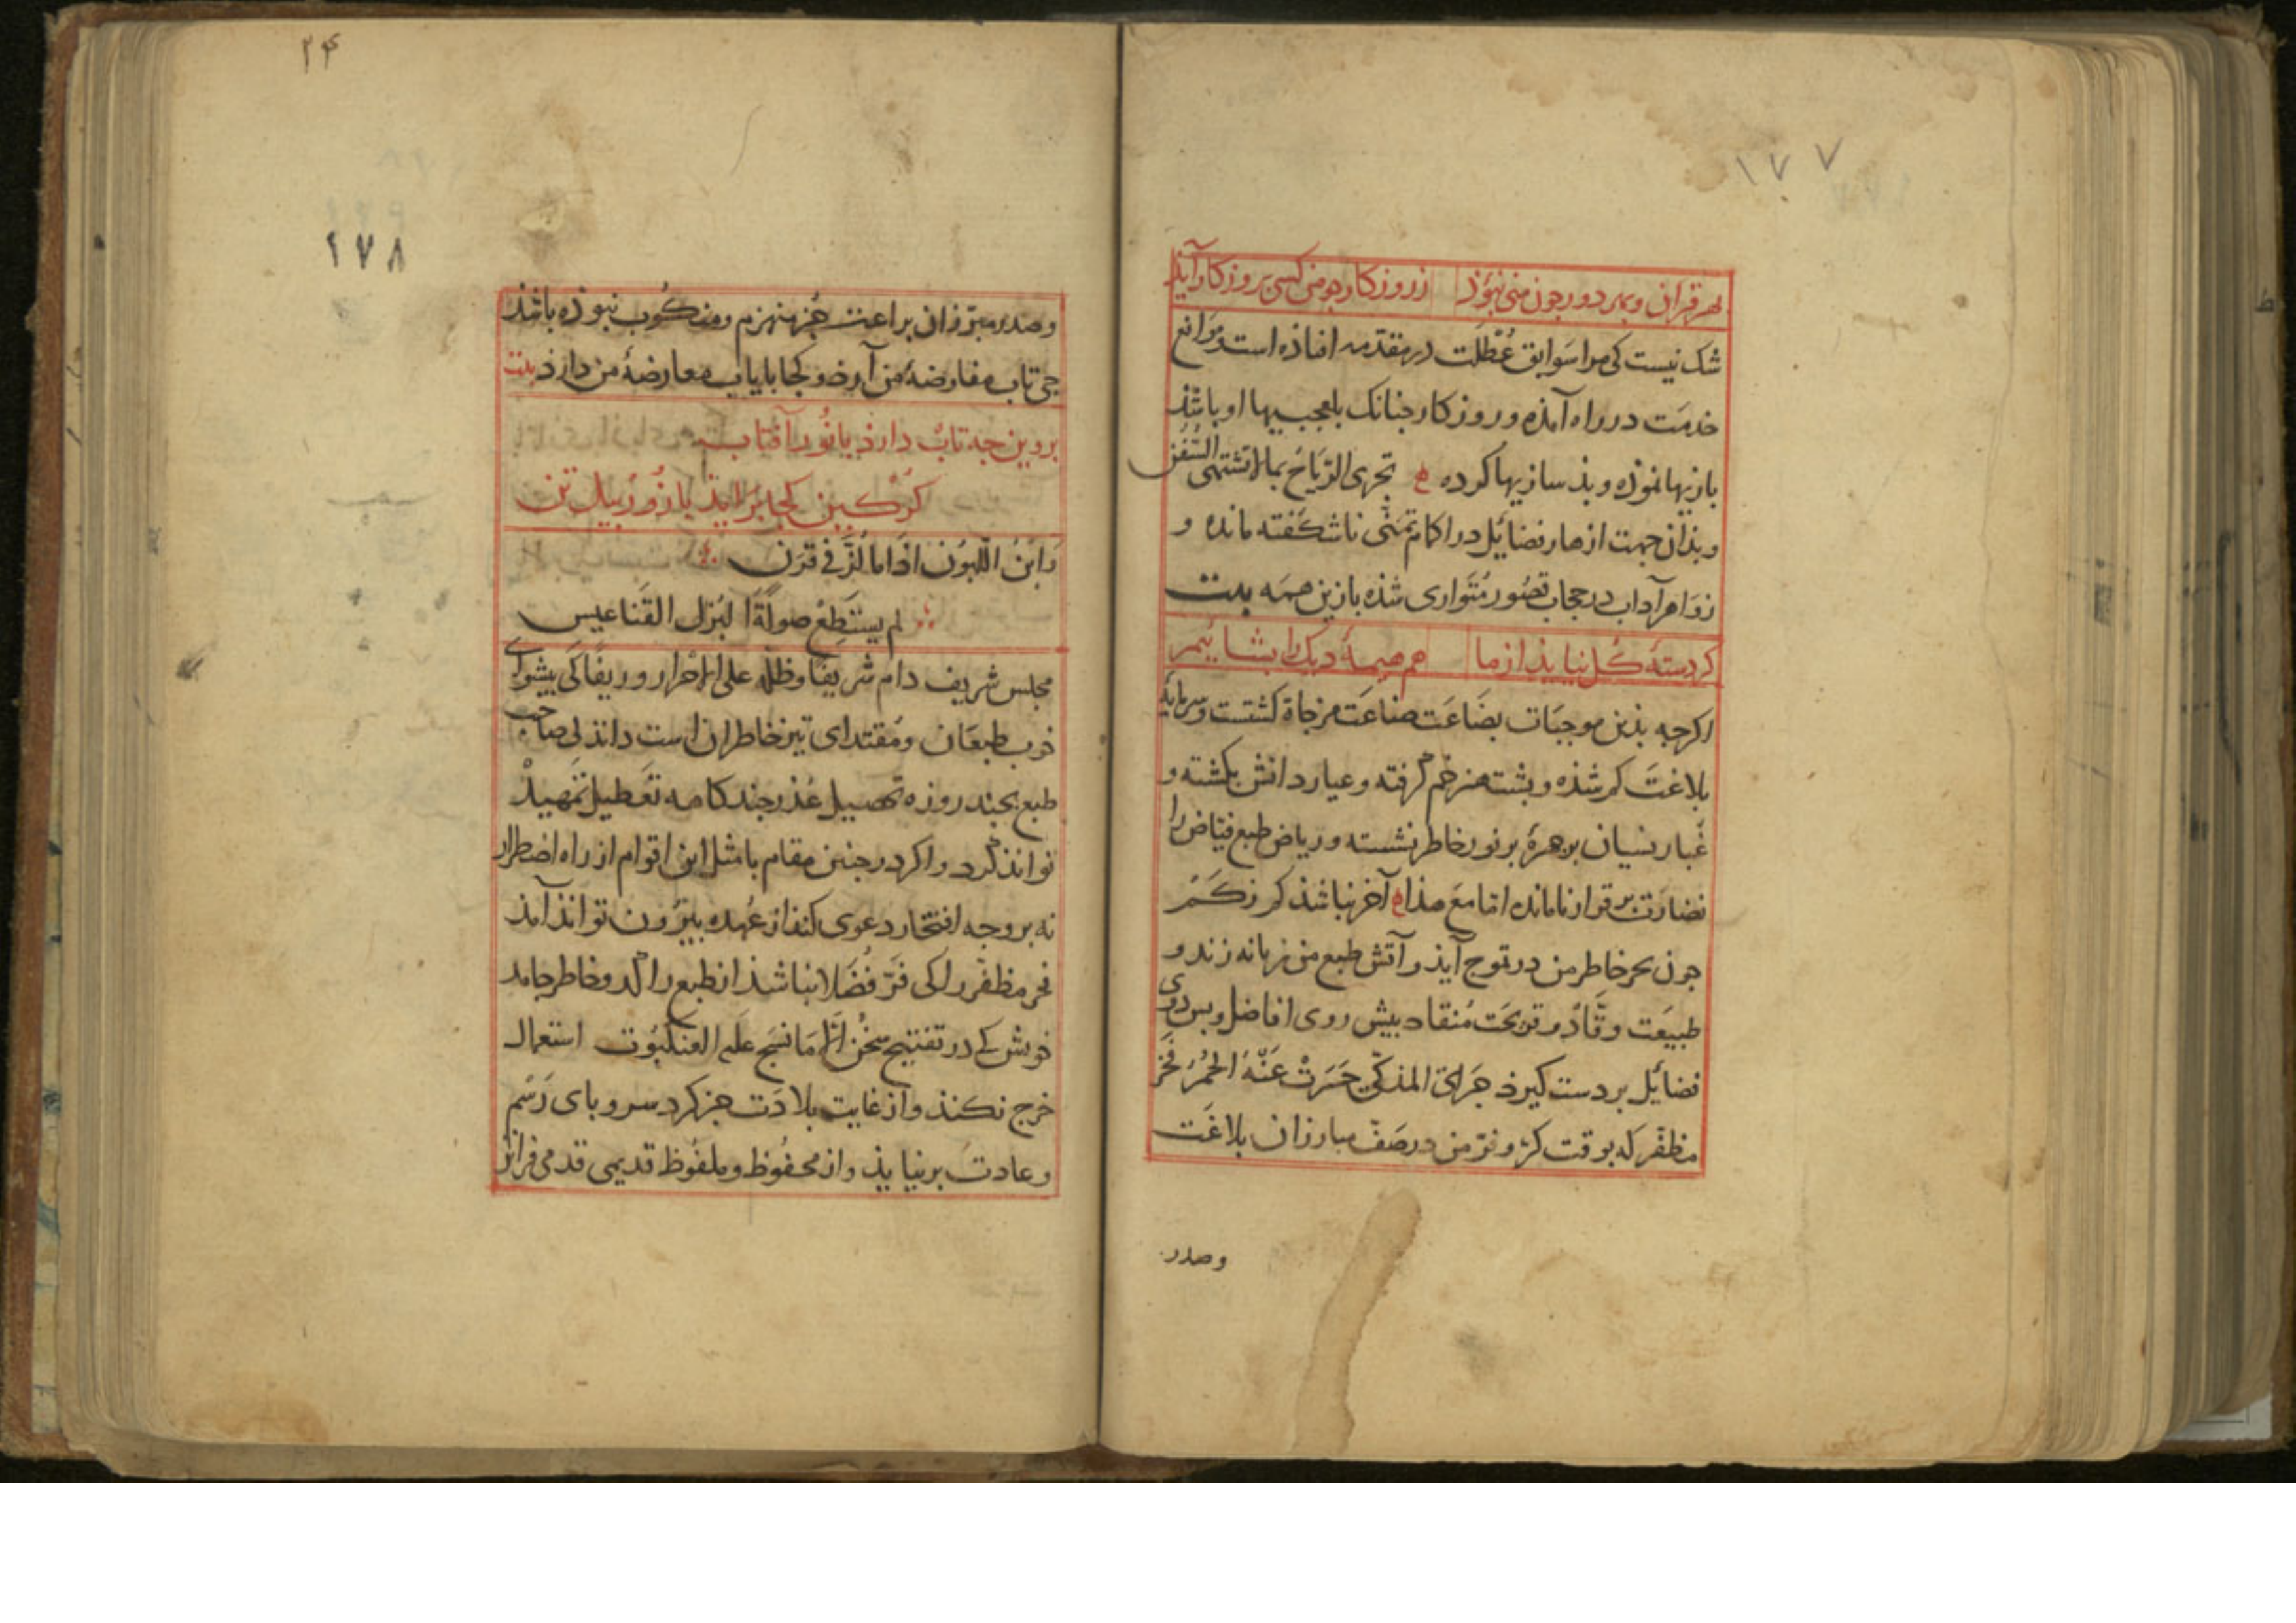 ۱۷۷
بهر قران و بهر دور چون منی نبوذ زروزکار جو من کسی بروزکار آیذ
شک نیست کی مرا سَوابق عُطلَت در مقدّمه افتاذه است و مَوانع
خدمَت در راه آمذه و روزکار جنانک بلعجبیها او باشذ
بازیها نموذه و بذسازیها کرده تجری الرّیَاحُ بما لا تشتهی السُّفُن
و بذان جهت ازهار فضائل در اکمام تمنّی ناشکفته مانده و
زوَاهر آداب در حجاب قصُور مُتَواری شذه با زین همَه بیت
کر دستهٔ کل نیایذ از ما هم هیمهٔ دیک را بشاییم
اکرچه بذین موجبَات بضَاعَت صناعَت مزجاة کشتست و سرمایهٔ
بلاغتَ کم شذه و بشت هنر خم کرفته و عیار دانش بکشته و
غُبار نسیان بر جهرهٔ بر نور خاطر نشسته و ریاض طبع فیّاض را
نضارَت بر قرار نامانده امّا مَعَ هذا آخر نباشذ کم ز کَم
جون بحر خاطر من در تموج آیذ و آتش طبع من زبانه زند و
طبیعَت وقّاد و قریحَت مُنقاد بیش روی افاضل و بس روی
فضائل بر دست کیرذ جَرَی المذکّی حَسَرَتْ عَنْهُ الحُمُر فخر
مظفّر که بوقت کرّ و فرّ من در صَفّ مبارزان بلاغَت
وصدر
۲۴
۱۷۸
و صدر مبرّزان براعت جُز منهزم و منکُوب نبوذه باشذ
جی تاب مفاوضهٔ من آورذ و کجا بایاب معارضهٔ من دارذ بیت
بروین جه تابْ دارذ با نُور آفتاب
کرکین کجا برایذ با زُور بیل تن
وَابْنُ اللّبُون اذا ما لُزَّ فی قرَن
لم یستَطِعْ صولَةَ البُزل القَناعیس
مجلس شریف دام شریفًا و ظله علی الاحْرار وریفًا کی بیشوای
خوب طبعَان و مُقتدای تیز خاطران است داند کی صاحب
طبع بجند روزه تحصیل عُذر جند کامه تعَطیل تمهیذْ
توانذ کرد و اکر در جنین مقام با مثل این اقوام از راه اضطرار
نه بر وجه افتخار دعوی کند از عُهده بیرُون توانذ آمذ
فخر مظفّر را کی فرّ فُضَلا نباشذ از طبع راکد و خاطر جامد
خویش کی در تفتیح سخُن الّا مَا نسَج علَیه العنکبُوت استعمال
خرج نکنذ و از غایت بلادَت جز کرد سر و بای رَسْم
و عادتَ برنیایذ و از محفُوظ و ملفُوظ قدیمی قدمی فراتر